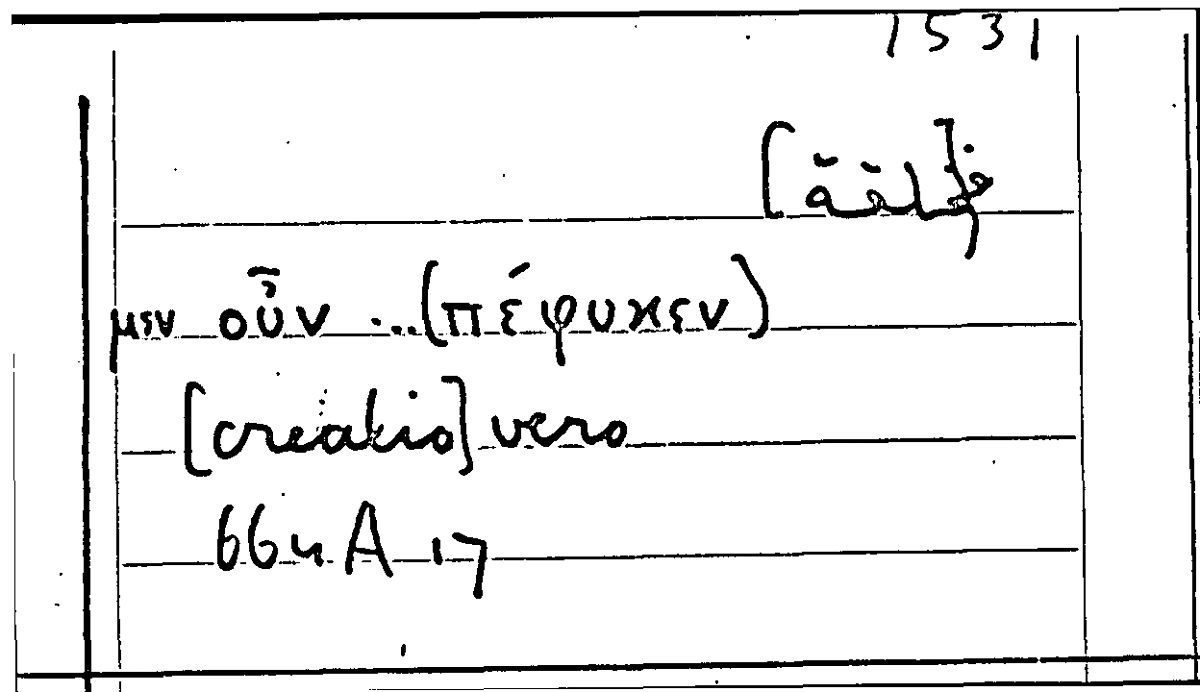 1531
ف[خلقة]
μεν οὖν ...(πέφυκεν)
[creatio] vero
664 A 17